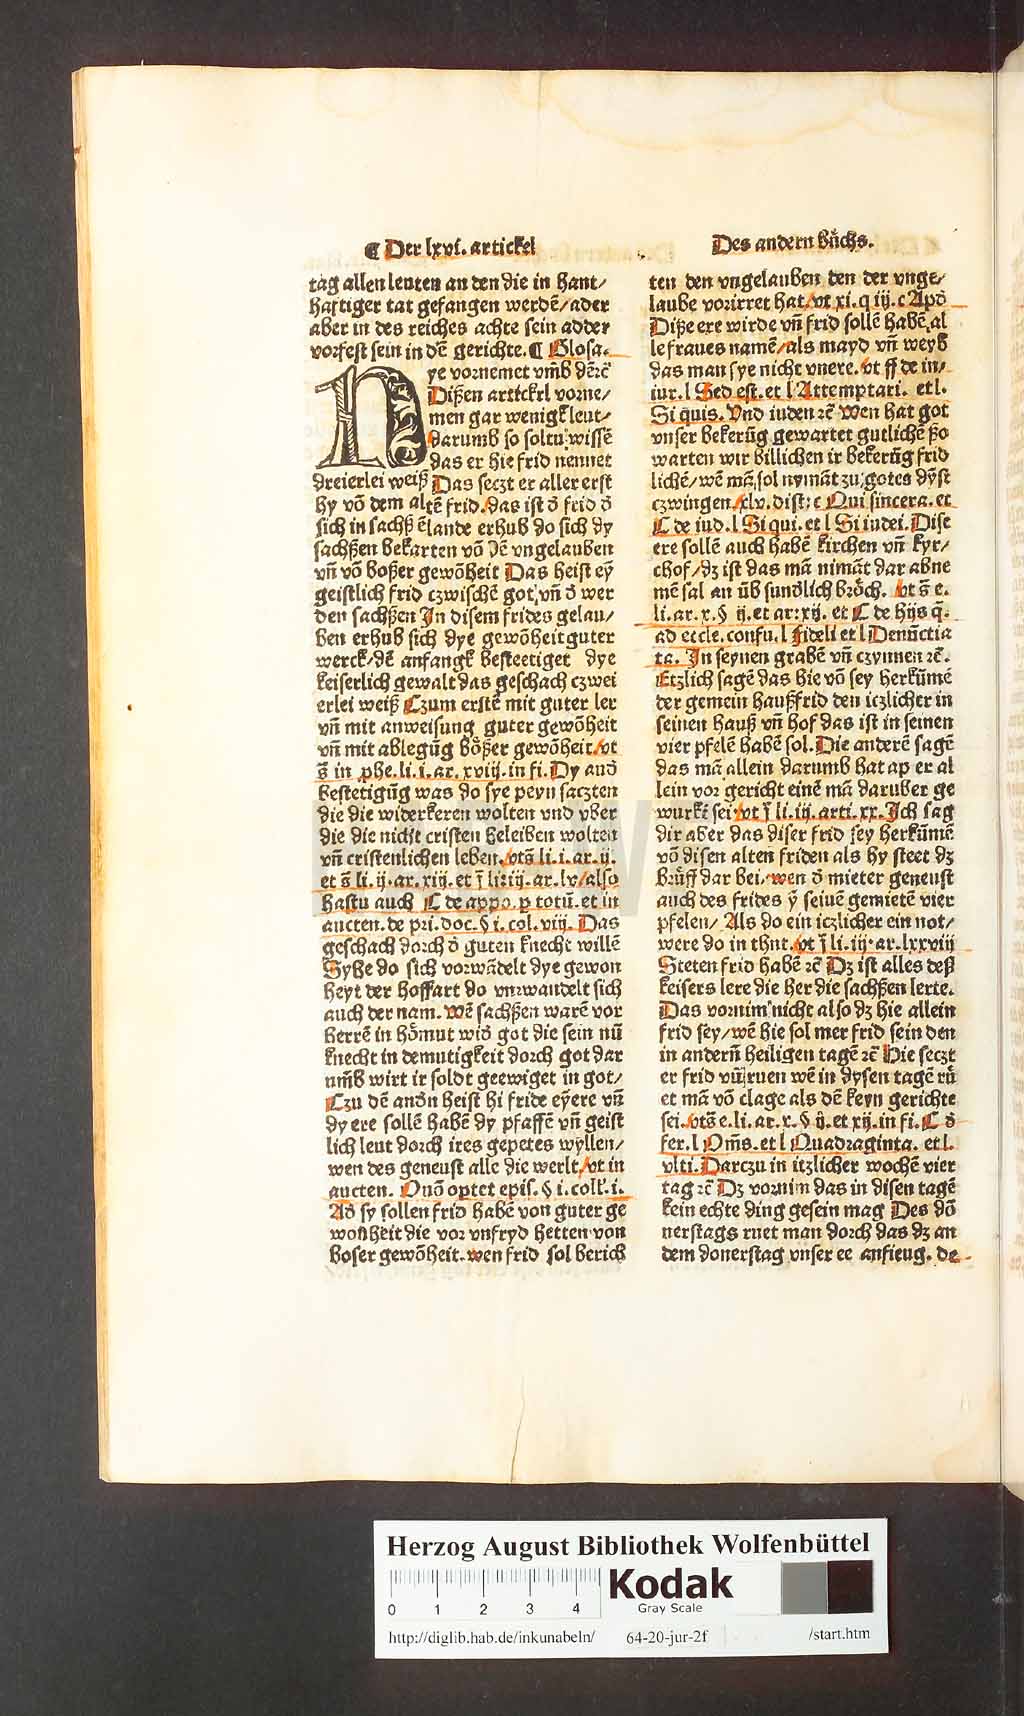 ¶ Der lxvi. artickel
Des andern bůchs.
tag allen leuten an den die in hant/
haftiger tat gefangen werdē/ ader
aber in des reiches achte sein adder
vorfest sein in dē gerichte. ¶ Glosa.
ye vornemet vm̄b dērē
Dißen artickel vorne/
men gar wenigk leut/
darumb so soltu wissē
das er hie frid nennet
dreierlei weiß Das seczt er aller erst
hy vō dem altē frid. das ist ð frid ð
sich in sachß ēlande erhub do sich dy
sachßen bekarten vō dē vngelauben
vn̄ vō boßer gewōheit Das heist eȳ
geistlich frid czwischē got/ vn̄ ð wer
den sachßen In disem frides gelau/
ben erhub sich dye gewōheit guter
werck/ dē anfangk besteetiget dye
keiserlich gewalt das geschach czwei
erlei weiß Czum erstē mit guter ler
vn̄ mit anweisung guter gewōheit
vn̄ mit ablegūg bößer gewōheit/ vt
s̄ in phe. li. i. ar. xviij. in fi. Dy anð
bestetigūg was do sye peyn saczten
die die widerkeren wolten vnd vber
die die nicht cristen beleiben wolten
vn̄ cristenlichen leben. vt s̄ li. i. ar. ij.
et s̄ li. ij. ar. xiij. et j̄ li. iij. ar. lv/ also
hastu auch C de appo. p totū. et in
aucten. de pri. doc. § i. col. viij. Das
geschach dorch ð guten knecht willē
Syße do sich vorwādelt dye gewon
heyt der hoffart do vnrwandelt sich
auch der nam. Wē sachßen warē vor
herrē in hömut wið got die sein nū
knecht in demutigkeit dorch got dar
um̄b wirt ir soldt geewiget in got/
Czu dē andn heist hi fride eyere vn̄
dy ere sollē habē dy pfaffē vn̄ geist
lich leut dorch ires gepetes wyllen/
wen des geneust alle die werlt/ vt in
aucten. Quō optet epis. § i. coll. i.
Ad sy sollen frid habē von guter ge
wonheit die vor vnfryd hetten von
boser gewōheit. wen frid sol berich
ten den vngelauben den der vnge/
laube vorirret hat/ vt xi. q iij. c Apð
Diße ere wirde vn̄ frid sollē habē al
le fraues namē/ als mayd vn̄ weyb
das man sye nicht vnere. vt ff de in/
iur. l Sed est. et l Attemptari. et l.
Si quis. Vnd iuden rē Wen hat got
vnser bekerūg gewartet gutlichē ßo
warten wir billichen ir bekerūg frid
lichē/ wē mā sol nymāt zu gotes dȳst
czwingen. xlv. dist. c Qui sincera. et
C de iud. l Si qui. et l Si iudei. Dise
ere sollē auch habē kirchen vn̄ kyr/
chof/ dz ist das mā nimāt dar abne
mē sal an ūb sundlich bröch. vt s̄ e.
li. ar. x. § ij. et ar. xij. et C de hijs q̄.
ad eccle. confu. l fideli et l Denūctia
ta. In seynen grabē vn̄ czynnen rē.
Etzlich sagē das hie vō sey herkūmē
der gemein haußfrid den iczlicher in
seinen hauß vn̄ hof das ist in seinen
vier pfelē habē sol. Die anderē sagē
das mā allein darumb hat ap er al
lein vor gericht einē mā daruber ge
wurkt sei. vt j̄ li. iij. arti. xx. Ich sag
dir aber das diser frid sey herkūmē
vō disen alten friden als hy steet dz
brüff dar bei. wen ð mieter geneust
auch des frides ȳ seinē gemietē vier
pfelen/ Als do ein iczlicher ein not/
were do in thut. vt j̄ li. iij. ar. lxxviij
Steten frid habē rē Dz ist alles deß
keisers lere die her die sachßen lerte.
Das vornim nicht also dz hie allein
frid sey/ wē hie sol mer frid sein den
in andern̄ heiligen tagē rē Hie seczt
er frid vn̄ ruen wē in dysen tagē rů
et mā vō clage als dē keyn gerichte
sei. vt s̄ e. li. ar. x. § ij. et xij. in fi. C ð
fer. l Om̄s. et l Quadraginta. et l.
vlti. Darczu in itzlicher wochē vier
tag rē Dz vornim das in disen tagē
kein echte ding gesein mag Des dō
nerstags ruet man dorch das dz an
dem donerstag vnser ee anfieng. de
Herzog August Bibliothek Wolfenbüttel
0 1 2 3 4
Kodak
Gray Scale
http://diglib.hab.de/inkunabeln/ 64-20-jur-2f /start.htm